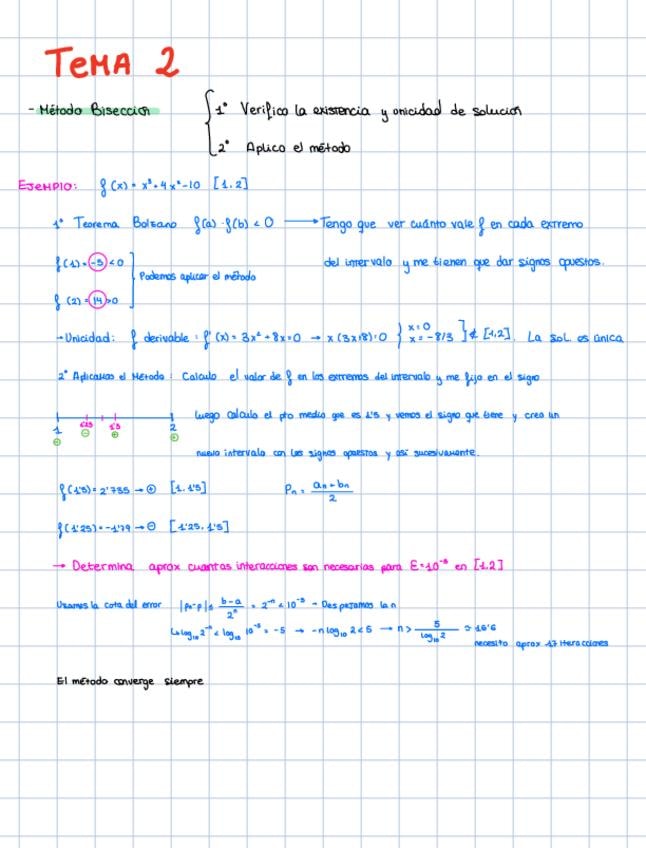 TEMA 2
- Método Bisección { 1º Verifico la existencia y unicidad de solución
2º Aplico el método
EJEMPLO: f(x) = x³+4x²-10 [1,2]
1º Teorema Bolzano f(a)·f(b) < 0 → Tengo que ver cuánto vale f en cada extremo
del intervalo y me tienen que dar signos opuestos.
f(1)=-5<0
Podemos aplicar el método
f(2)=14>0
→ Unicidad: f derivable: f'(x) = 3x²+8x=0 → x(3x+8)=0 } x=0 x=-8/3 ] ∉ [1,2]. La sol. es única
2º Aplicamos el Método: Calculo el valor de f en los extremos del intervalo y me fijo en el signo
1 1'25 1'5 2
⊖ ⊖ ⊕ ⊕
luego calculo el pto medio que es 1'5 y vemos el signo que tiene y creo un
nuevo intervalo con los signos opuestos y así sucesivamente.
f(1'5)=2'735 → ⊕ [1,1'5] Pn = an+bn / 2
f(1'25)=-1'79 → ⊖ [1'25,1'5]
→ Determina aprox cuantas interacciones son necesarias para E=10⁻⁵ en [1,2]
Usamos la cota del error |Pn-P| ≤ b-a / 2ⁿ = 2⁻ⁿ < 10⁻⁵ → Despejamos la n
↳ log₁₀ 2⁻ⁿ < log₁₀ 10⁻⁵ = -5 → -n log₁₀ 2 < 5 → n > 5 / log₁₀ 2 ≈ 16'6
necesito aprox 17 iteracciones
El método converge siempre